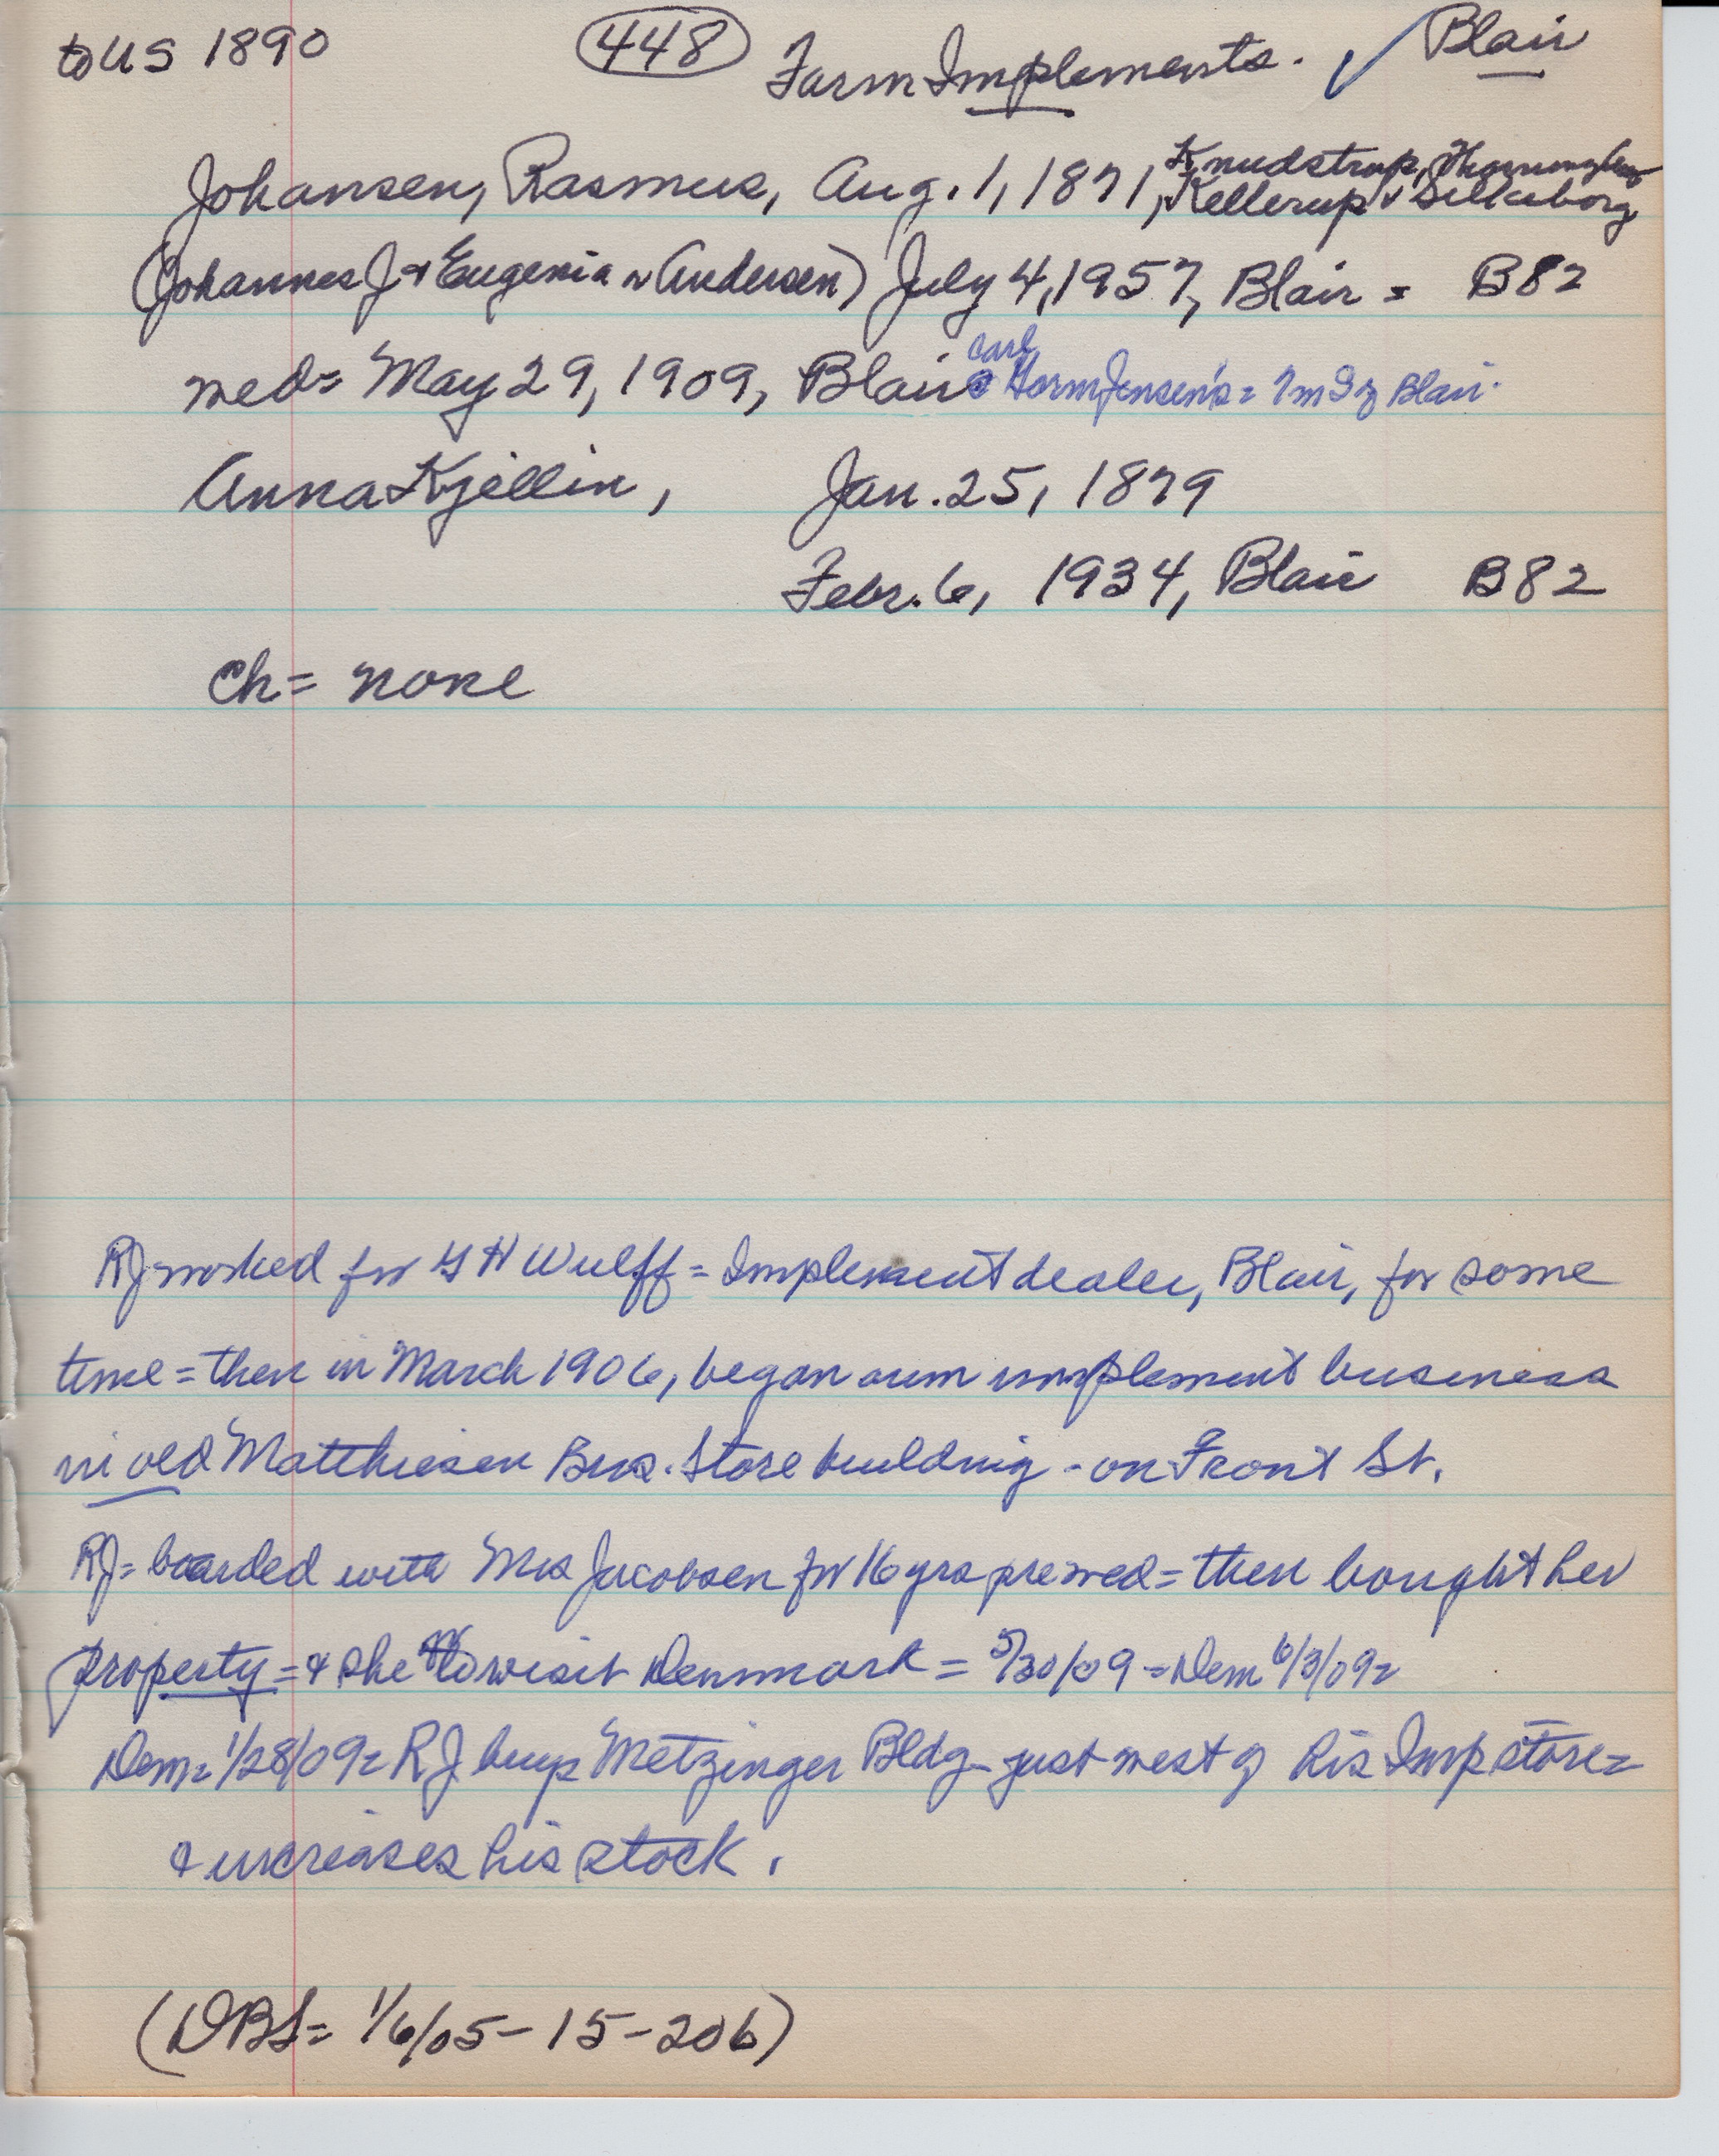 to US 1890 448 Farm Implements. ✓ Blair
Knudstrup,
Johansen, Rasmus, Aug. 1, 1871, Kellerup v Silkeborg
(Johannes J + Eugenia n Andersen) July 4, 1957, Blair = B82
Carl
wed = May 29, 1909, Blair @ Gorm Jensen's = Blair.
Anna Kjellin, Jan. 25, 1879
Febr. 6, 1934, Blair B82
ch = none
RJ worked for G H Wulff = Implement dealer, Blair, for some
time = then in March 1906, began own implement business
in old Matthiesen Bros. Store building - on Front St.
RJ = boarded with Mrs Jacobsen for 16 yrs pre wed = then bought her
property = + she to visit Denmark = 5/30/09 = Dem 6/3/09 =
Dem = 1/28/09 = RJ buys Metzinger Bldg - just west of his Imp store =
+ increases his stock.
(DBS = 1/6/05 - 15 - 206)